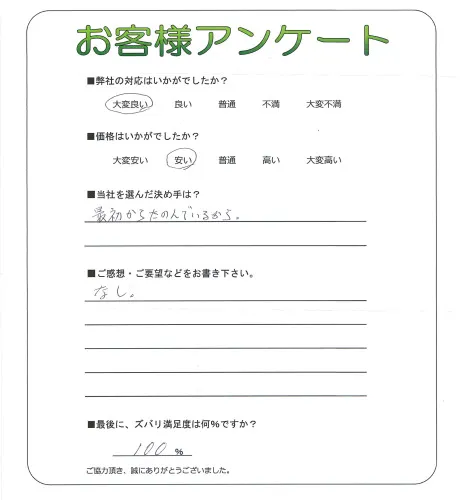 お客様アンケート
■弊社の対応はいかがでしたか？
大変良い 良い 普通 不満 大変不満
■価格はいかがでしたか？
大変安い 安い 普通 高い 大変高い
■当社を選んだ決め手は？
最初からたのんでいるから。
■ご感想・ご要望などをお書き下さい。
なし。
■最後に、ズバリ満足度は何%ですか？
100 %
ご協力頂き、誠にありがとうございました。